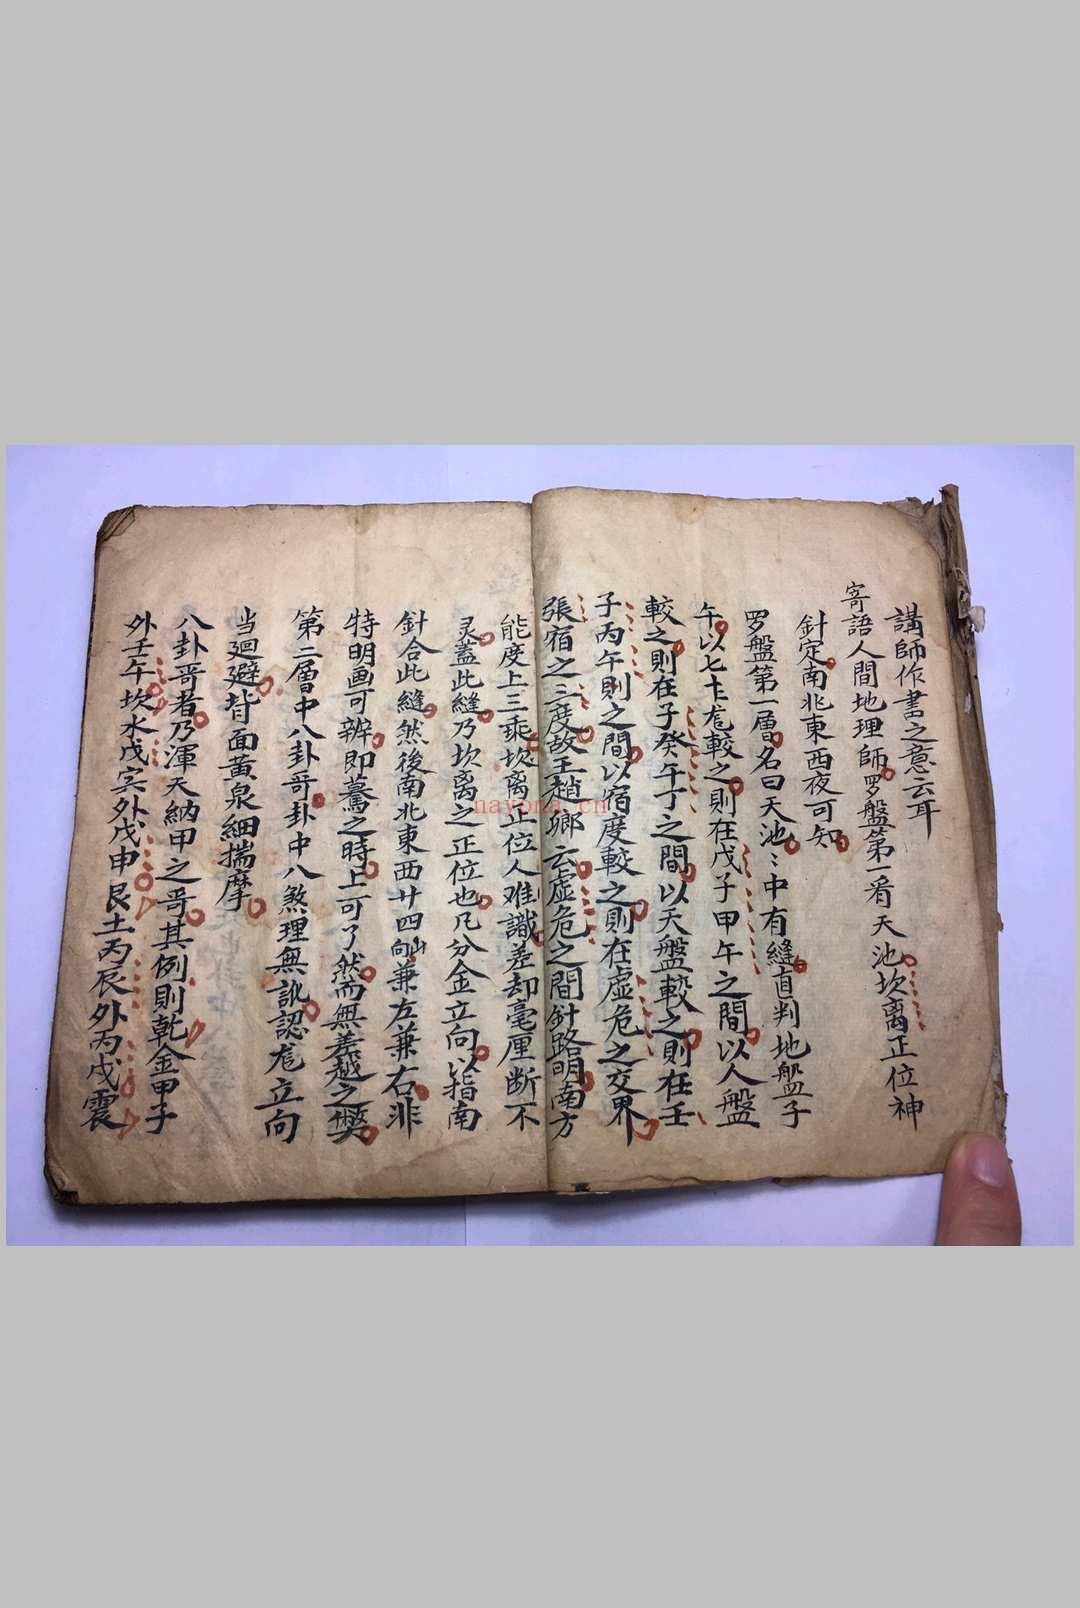 講師作書之意云耳
寄語人間地理師罗盤第一看天池坎离正位神
針定南北東西夜可知
罗盤第一層名曰天池〻中有縫直判地盤子
午以七十尨較之則在戊子甲午之間以人盤
較之則在子癸午丁之間以天盤較之則在壬
子丙午則之間以宿度較之則在虚危之交界
張宿之三度故王趙鄉云虚危之間針路明南方
能度上三乘坎离正位人难識差却毫厘断不
灵蓋此縫乃坎离之正位也凡分金立向以指南
針合此縫然後南北東西廿四山向兼左兼右非
特明画可辨即驀之時上可了然而無差越之樊
第二層中八卦哥卦中八煞理無訛認尨立向
当廻避背面黄泉細揣摩
八卦哥者乃渾天納甲之哥其例則乾金甲子
外壬午坎水戊寅外戊申艮土丙辰外丙戌震
nayona.cn